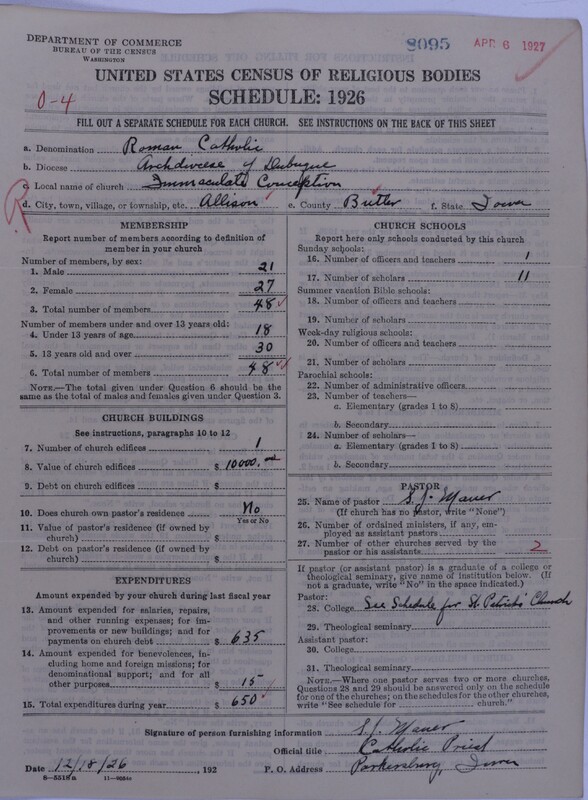 DEPARTMENT OF COMMERCE
BUREAU OF THE CENSUS
WASHINGTON
8095
APR 6 1927
UNITED STATES CENSUS OF RELIGIOUS BODIES
SCHEDULE: 1926
0-4
FILL OUT A SEPARATE SCHEDULE FOR EACH CHURCH. SEE INSTRUCTIONS ON THE BACK OF THIS SHEET
a. Denomination Roman Catholic
b. Diocese Archdiocese of Dubuque
c. Local name of church Immaculate Conception
R
d. City, town, village, or township, etc. Allison e. County Butler f. State Iowa
MEMBERSHIP
Report number of members according to definition of
member in your church
Number of members, by sex:
1. Male 21
2. Female 27
3. Total number of members 48
Number of members under and over 13 years old:
4. Under 13 years of age 18
5. 13 years old and over 30
6. Total number of members 48
NOTE.—The total given under Question 6 should be
same as the total of males and females given under Question 3.
CHURCH BUILDINGS
See instructions, paragraphs 10 to 12
7. Number of church edifices 1
8. Value of church edifices $ 10000.
9. Debt on church edifices $
10. Does church own pastor's residence? No
Yes or No
11. Value of pastor's residence (if owned by
church) $
12. Debt on pastor's residence (if owned by
church) $
EXPENDITURES
Amount expended by your church during last fiscal year
13. Amount expended for salaries, repairs,
and other running expenses; for im-
provements or new buildings; and for
payments on church debt $ 635
14. Amount expended for benevolences,
including home and foreign missions; for
denominational support; and for all
other purposes $ 15
15. Total expenditures during year $ 650
CHURCH SCHOOLS
Report here only schools conducted by this church
Sunday schools:
16. Number of officers and teachers 1
17. Number of scholars 11
Summer vacation Bible schools:
18. Number of officers and teachers
19. Number of scholars
Week-day religious schools:
20. Number of officers and teachers
21. Number of scholars
Parochial schools:
22. Number of administrative officers
23. Number of teachers—
a. Elementary (grades 1 to 8)
b. Secondary
24. Number of scholars—
a. Elementary (grades 1 to 8)
b. Secondary
PASTOR
25. Name of pastor S. J. Mauer
(If church has no pastor, write "None")
26. Number of ordained ministers, if any, em-
ployed as assistant pastors
27. Number of other churches served by the
pastor or his assistants 2
If pastor (or assistant pastor) is a graduate of a college or
theological seminary, give name of institution below. (If
not a graduate, write "No" in the space indicated.)
Pastor:
28. College See Schedule for St. Patrick's Church
29. Theological seminary
Assistant pastor:
30. College
31. Theological seminary
NOTE.—Where one pastor serves two or more churches,
Questions 28 and 29 should be answered only on the schedule
for one of the churches; on the schedules for the other churches,
write "See schedule for church."
Signature of person furnishing information S. J. Mauer
Official title Catholic Priest
Date 12/18/26, 192 P. O. Address Parkersburg, Iowa